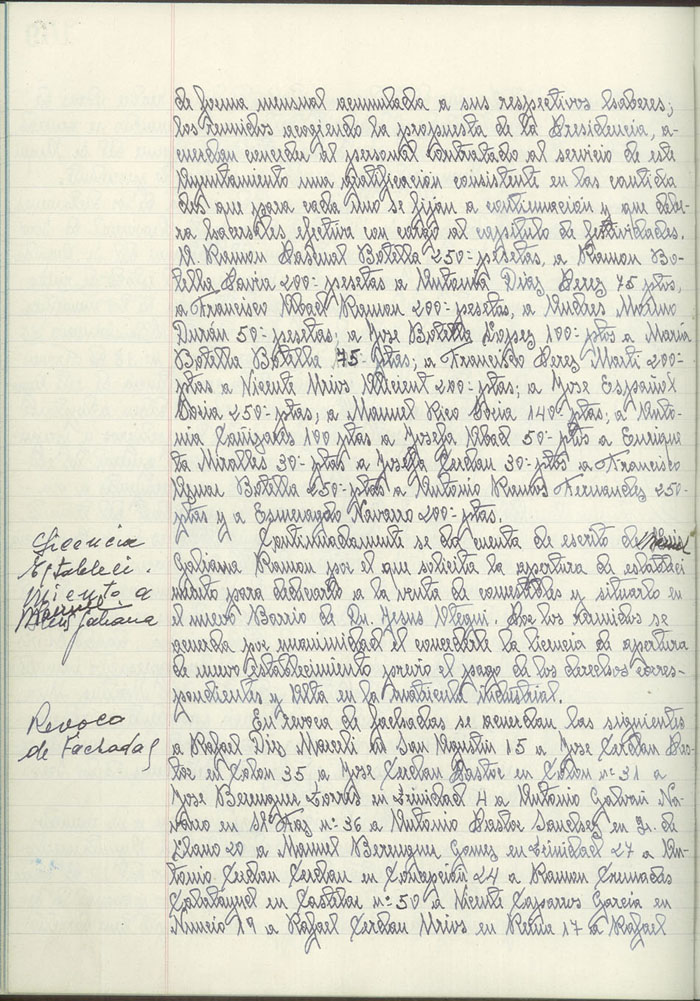 de forma mensual acumulada a sus respectivos haberes;
los reunidos acogiendo la propuesta de la Presidencia, a-
cuerdan conceder al personal contratado al servicio de este
Ayuntamiento una gratificación consistente en las cantida
des que para cada uno se fijan a continuación y que debe-
ra haberseles efectiva con cargo al capitulo de festividades.
A. Ramon Pascual Botella 250- pesetas, a Ramon Bo-
tella 200- pesetas a Antonia Diaz Perez 75 ptas,
a Francisco Abad Ramon 200- pesetas, a Andres Molino
Durán 50- pesetas; a Jose Botella Lopez 100- ptas a Maria
Botella Botella 75 ptas; a Francisco Perez Marti 200-
ptas a Vicente Mrivs 200- ptas; a Jose Español
250- ptas; a Manuel Rico 140- ptas; a Anto-
nia Cañizares 100 ptas a Josefa Abad 50- ptas a Enrique
ta Miralles 30- ptas a Josefa Cerdan 30- ptas a Francisco
Aznar Botella 250- ptas a Antonio Ramos Fernandez 250-
ptas y a Esmeragdo Navarro 200- ptas.
Licencia
Estableci.
miento a
Galiana
Continuadamente se da cuenta de escrito de
Galiana Ramon por el que solicita la apertura de estableci
miento para dedicarlo a la venta de comestibles y situarlo en
el nuevo Barrio de Dn. Jesus Ategui. Por los reunidos se
acuerda por unanimidad el concederle la licencia de apertura
de nuevo establecimiento previo el pago de los derechos corres-
pondientes y Alta en la matricula industrial.
Revoco
de Fachadas
En revoco de fachadas se acuerdan las siguientes
a Rafael Diez Marcli en San Agustin 15 a Jose Cerdan Pas-
tor en Colon 35 a Jose Cerdan Pastor en Colon nº 31 a
Jose Berenguer Torres en Trinidad 4 a Antonio Galvañ Na-
varro en Sta Faz nº 36 a Antonio Basta Sanchez en G. de
Llano 20 a Manuel Berenguer Gomez en Trinidad 27 a An-
tonio Cerdan Cerdan en Concepción 24 a Ramon Cremades
Calatayud en Castelar nº 50 a Vicente Casparros Garcia en
Murcia 19 a Rafael Cerdan Mrivs en Reina 17 a Rafael